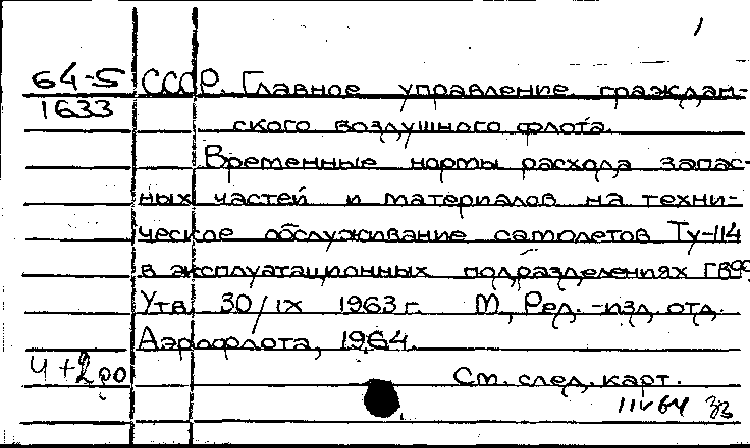 1
64-5 СССР. Главное управление граждан-
1633
ского воздушного флота.
Временные нормы расхода запас-
ных частей и материалов на техни-
ческое обслуживание самолетов Ту-114
в эксплуатационных подразделениях ГВФ.
Утв. 30/IX 1963 г. М., Ред.-изд. отд.
Аэрофлота, 1964.
Ч +2
См. след. карт.